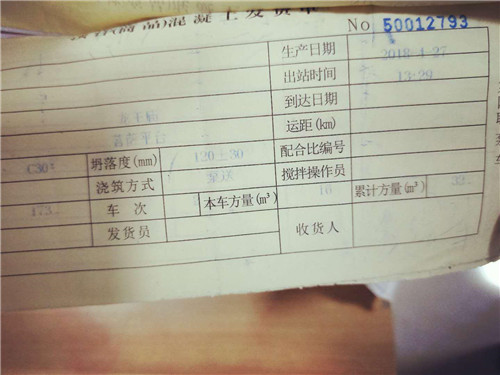 混凝土发货单
No 50012793
生产日期 2018-4-27
出站时间 13:29
到达日期
运距(km)
C30 坍落度(mm) 120±30 配合比编号
浇筑方式 泵送 搅拌操作员
173 车次 本车方量(m³) 16 累计方量(m³) 32
发货员 收货人